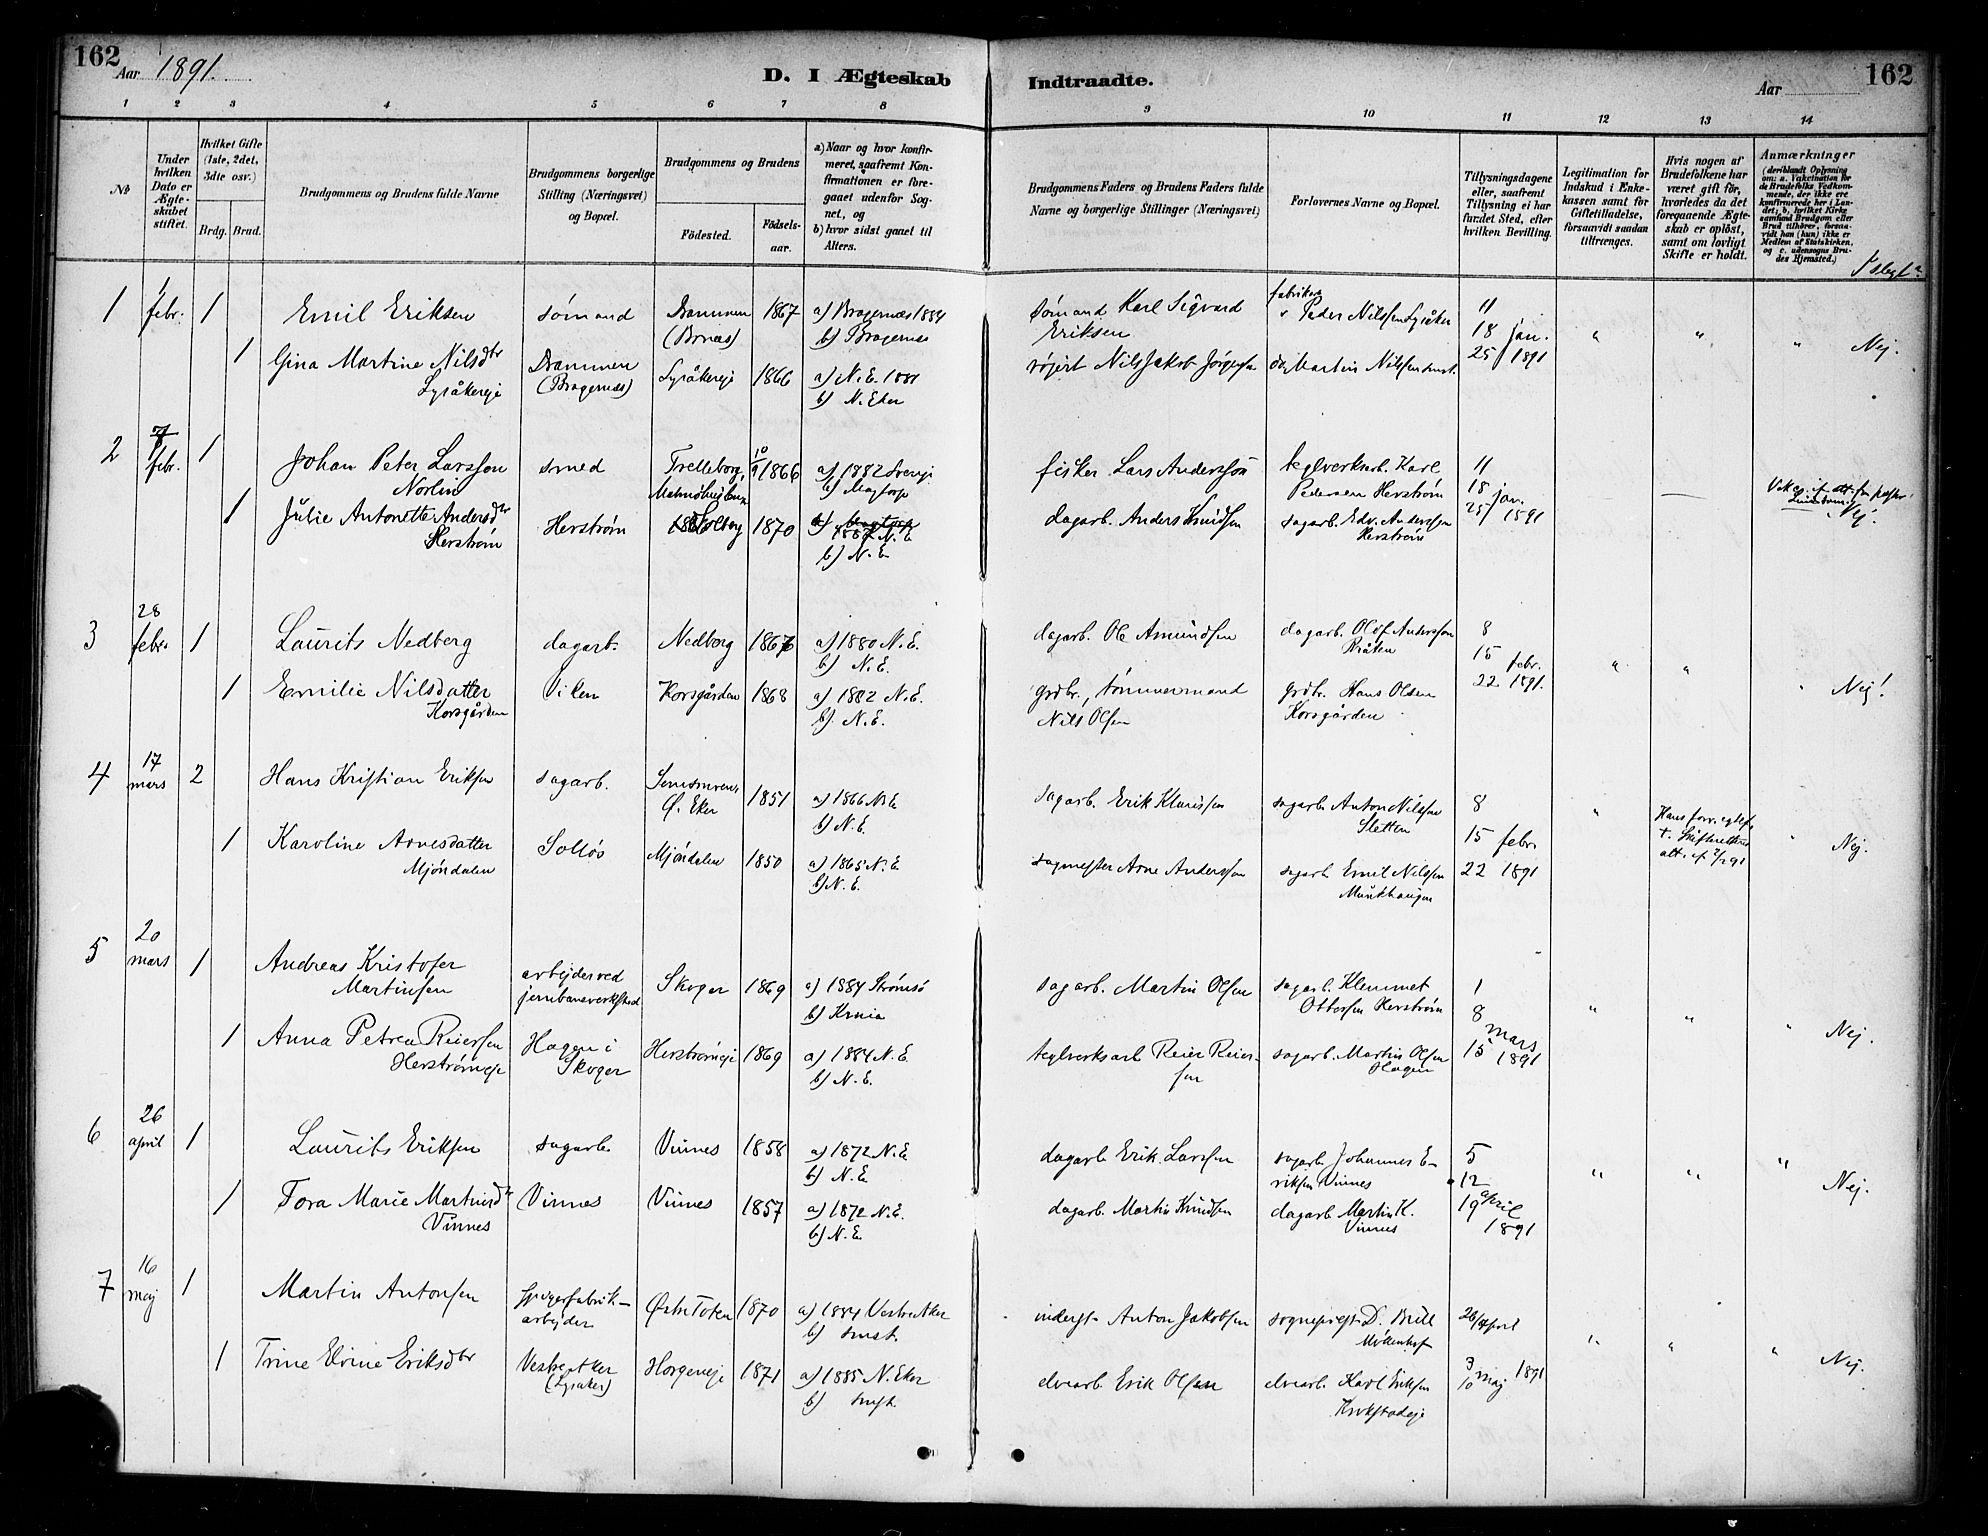 162
Aar 1891.
D. I Ægteskab Indtraadte.
Aar
162
1 2 3 4 5 6 7 8 9 10 11 12 13 14
No
Under hvilken Dato er Ægteskabet stiftet.
Hvilket Gifte (1ste, 2det, 3die osv.)
Brdg. Brud.
Brudgommens og Brudens fulde Navne
Brudgommens borgerlige Stilling (Næringsvei) og Bopæl.
Brudgommens og Brudens
Fødested.
Fødselsaar.
a) Naar og hvor konfirmeret, saafremt Konfirmationen er foregaaet udenfor Sognet, og
b) hvor sidst gaaet til Alters.
Brudgommens Faders og Brudens Faders fulde Navne og borgerlige Stillinger (Næringsvei)
Forlovernes Navne og Bopæl.
Tillysningsdagene eller, saafremt Tillysning ei har fundet Sted, efter hvilken Bevilling.
Legitimation for Indskud i Enkekassen samt for Giftetilladelse, forsaavidt saadan tiltrænges.
Hvis nogen af Brudefolkene har været gift før, hvorledes da det foregaaende Ægteskab er opløst, samt om lovligt Skifte er holdt.
Anmærkninger (deriblandt Oplysning om: a. Vakcination for de Brudefolks Vedkommende, der ikke ere konfirmerede her i Landet; b. hvilket Kirkesamfund Brudgom eller Brud tilhører, forsaavidt han (hun) ikke er Medlem af Statskirken, og c. udensogns Brudes Hjemsted.)
1 1 febr. 1 Emil Eriksen sømand Drammen (Brnæs) 1867 a) Bragernæs 1884 b) Bragernæs sømand Karl Sigvard Eriksen Peder Nilssen Lysåker 11 18 25 jan. 1891 " " " Nej.
1 Gina Martine Nilsdtr Lysåkereje Drammen (Bragernæs) Lysåkereje 1866 a) N.E. 1881 b) N. Eker Nils Jakob Jørgensen Martin Nilssen smst.
2 7 febr. 1 Johan Peter Larsson Norlin smed Trelleborg, 10/9 1866 a) 1882 Sverige fisker Lars Andersson teglverksarb. Karl Pedersen Herstrøm 11 18 25 jan. 1891 Nej.
1 Julie Antonette Andersdtr Herstrøm Herstrøm Solberg 1870 1887 N.E b) N.E. dagarb. Anders Knudsen sagarb. Edv. Anderssen Herstrøm
3 28 febr. 1 Laurits Nedberg dagarb. Nedberg 1867 a) 1880 N.E. b) N.E. dagarb. Ole Amundsen dagarb. Olof Andersson Bråten 8 15 22 febr. 1891. " " " Nej!
1 Emilie Nilsdatter Korsgården Viken Korsgården 1868 a) 1882 N.E. b) N.E. grdbr., tømmermand Nils Olsen grdbr. Hans Olsen Korsgården
4 17 mars 2 Hans Kristian Eriksen sagarb. Ø. Eker 1851 a) 1866 N.E b) N.E. sagarb. Erik Klausen sagarb. Anton Nilsson Sletten 8 15 22 febr. 1891 " Hans forr. " Nej.
1 Karoline Arnesdatter Mjøndalen Solløs Mjøndalen 1850 a) 1865 N.E b) N.E. sagmester Arne Anderssen sagarb. Emil Nilssen Munkhaugen
5 20 mars 1 Andreas Kristofer Martinsen arbejder ved jernbaneverksted Skoger 1869 a) 1884 Strømsø b) Krnia sagarb. Martin Olsen sagarb. Klemmet Ottersen Herstrøm 1 8 15 mars 1891 " " " Nej.
1 Anna Petrea Reiersen Herstrømeje Hagen i Skoger Herstrømeje 1869 a) 1884 N.E. b) N.E. teglverksarb Reier Reiersen sagarb. Martin Olsen Hagen
6 26 april 1 Laurits Eriksen sagarb. Vinnes 1858 a) 1872 N.E. b) N.E. dagarb. Erik Larssen sagarb. Johannes Eriksen Vinnes 5 12 19 april 1891 " " " Nej.
1 Tora Marie Martinsdtr Vinnes Vinnes Vinnes 1857 a) 1872 N.E. b) N.E. dagarb. Martin Knudsen dagarb. Martin K. Vinnes
7 16 maj 1 Martin Antonsen spigerfabrikarbejder Østre Toten 1870 a) 1884 Vestre Aker b) smst. inderst Anton Jakobsen sogneprest D. Bull Møllenhof 26/april 3 10 maj 1891 " " " Nej.
1 Trine Elvine Eriksdtr Vestre Aker (Lysaker) Horgeneje 1871 a) 1885 N. Eker b) smst. elvearb. Erik Olsen elvearb. Karl Eriksen Krokstadeje